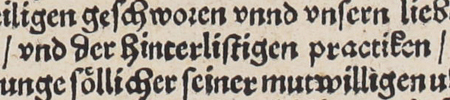 eiligen geschworen vnnd vnsern lieb
/ vnd der hinterlistigen practiken /
unge soͤllicher seiner mutwilligen u